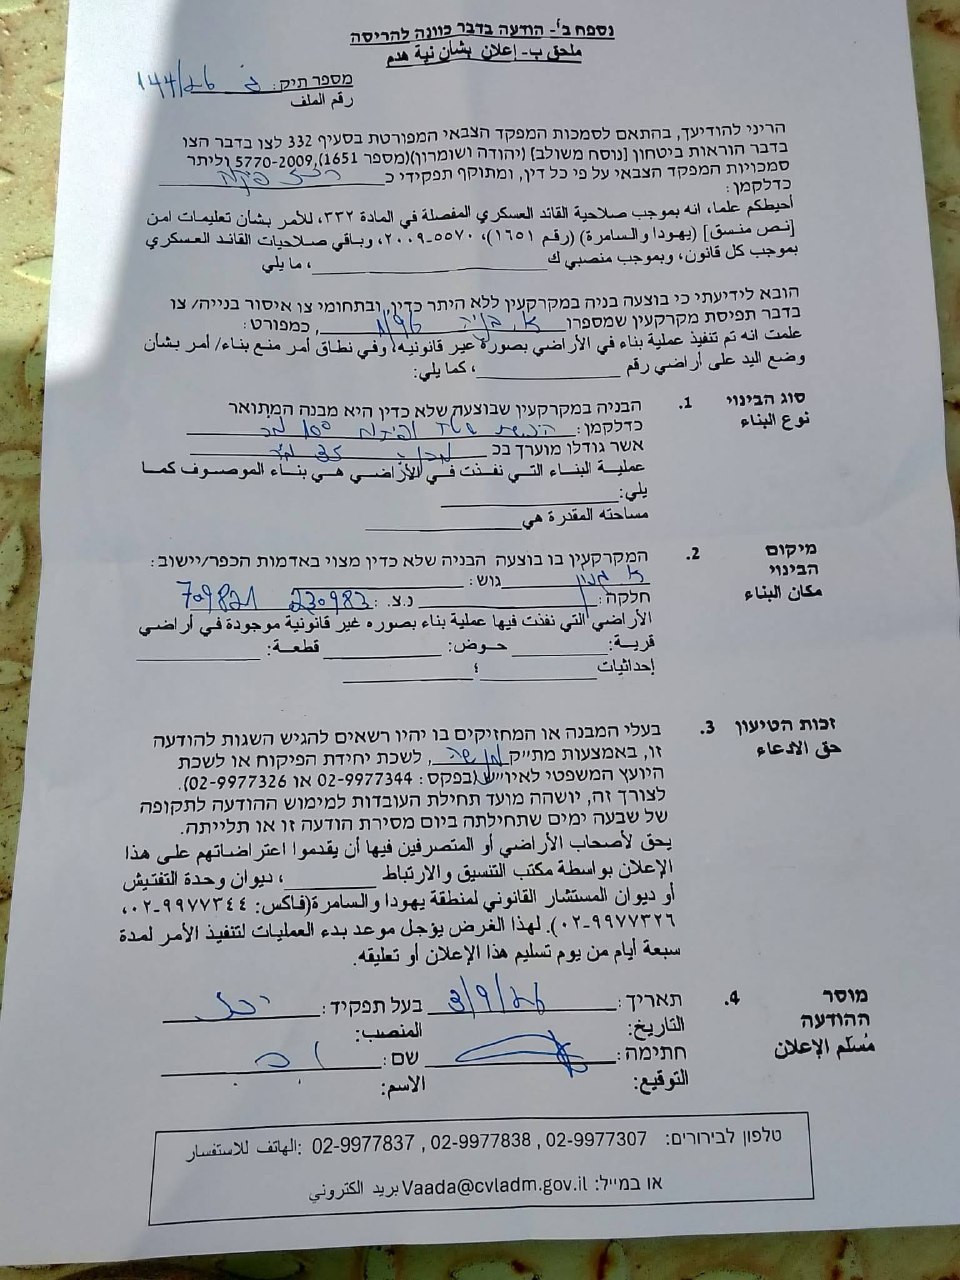 נספח ב'- הודעה בדבר כוונה להריסה
ملحق ب- إعلان بشأن نية هدم
מספר תיק: 144/26
رقم الملف
הריני להודיעך, בהתאם לסמכות המפקד הצבאי המפורטת בסעיף 332 לצו בדבר הצו
בדבר הוראות ביטחון [נוסח משולב] (יהודה ושומרון)(מספר 1651),5770-2009 וליתר
סמכויות המפקד הצבאי על פי כל דין, ומתוקף תפקידי כ
כדלקמן:
أحيطكم علما، انه بموجب صلاحية القائد العسكري المفصلة في المادة ٣٣٢، للأمر بشأن تعليمات امن
[نص منسق] (يهودا والسامرة) (رقم ١٦٥١)، ٥٥٧٠-٢٠٠٩، وباقي صلاحيات القائد العسكري
بموجب كل قانون، وبموجب منصبي ك، ما يلي
הובא לידיעתי כי בוצעה בניה במקרקעין ללא היתר כדין, ובתחומי צו איסור בנייה/ צו
בדבר תפיסת מקרקעין שמספרו א. בניה 1/96, כמפורט:
علمت انه تم تنفيذ عملية بناء في الأراضي بصورة غير قانونية، وفي نطاق أمر منع بناء/ أمر بشأن
وضع اليد على أراضي رقم، كما يلي:
סוג הבינוי 1. הבניה במקרקעין שבוצעה שלא כדין היא מבנה המתואר
نوع البناء כדלקמן:
אשר גודלו מוערך בכ 35
عملية البناء التي نفذت في الأراضي هي بناء الموصوف كما
يلي:
مساحته المقدرة هي
מיקום 2. המקרקעין בו בוצעה הבניה שלא כדין מצוי באדמות הכפר/יישוב:
הבינוי גוש:
مكان البناء חלקה: נ.צ.: 230983 709821
الأراضي التي نفذت فيها عملية بناء بصوره غير قانونية موجودة في أراضي
قرية: حوض: قطعة:
إحداثيات ؛
זכות הטיעון 3. בעלי המבנה או המחזיקים בו יהיו רשאים להגיש השגות להודעה
حق الادعاء זו, באמצעות מת"ק מנשה, לשכת יחידת הפיקוח או לשכת
היועץ המשפטי לאיו"ש (בפקס: 02-9977344 או 02-9977326).
לצורך זה, יושהה מועד תחילת העובדות למימוש ההודעה לתקופה
של שבעה ימים שתחילתה ביום מסירת הודעה זו או תלייתה.
يحق لأصحاب الأراضي أو المتصرفين فيها أن يقدموا اعتراضاتهم على هذا
الإعلان بواسطة مكتب التنسيق والارتباط، ديوان وحدة التفتيش
أو ديوان المستشار القانوني لمنطقة يهودا والسامرة(فاكس: ٩٩٧٧٣٤٤-٠٢،
٩٩٧٧٣٢٦-٠٢). لهذا الغرض يؤجل موعد بدء العمليات لتنفيذ الأمر لمدة
سبعة أيام من يوم تسليم هذا الإعلان أو تعليقه.
מוסר 4. תאריך: 3/9/26 בעל תפקיד:
ההודעה التاريخ: المنصب:
مُسلّم الإعلان חתימה: שם:
التوقيع: الاسم:
טלפון לבירורים: 02-9977307 , 02-9977838 , 02-9977837 :الهاتف للاستفسار
או במייל: Vaada@cvladm.gov.il بريد الكتروني